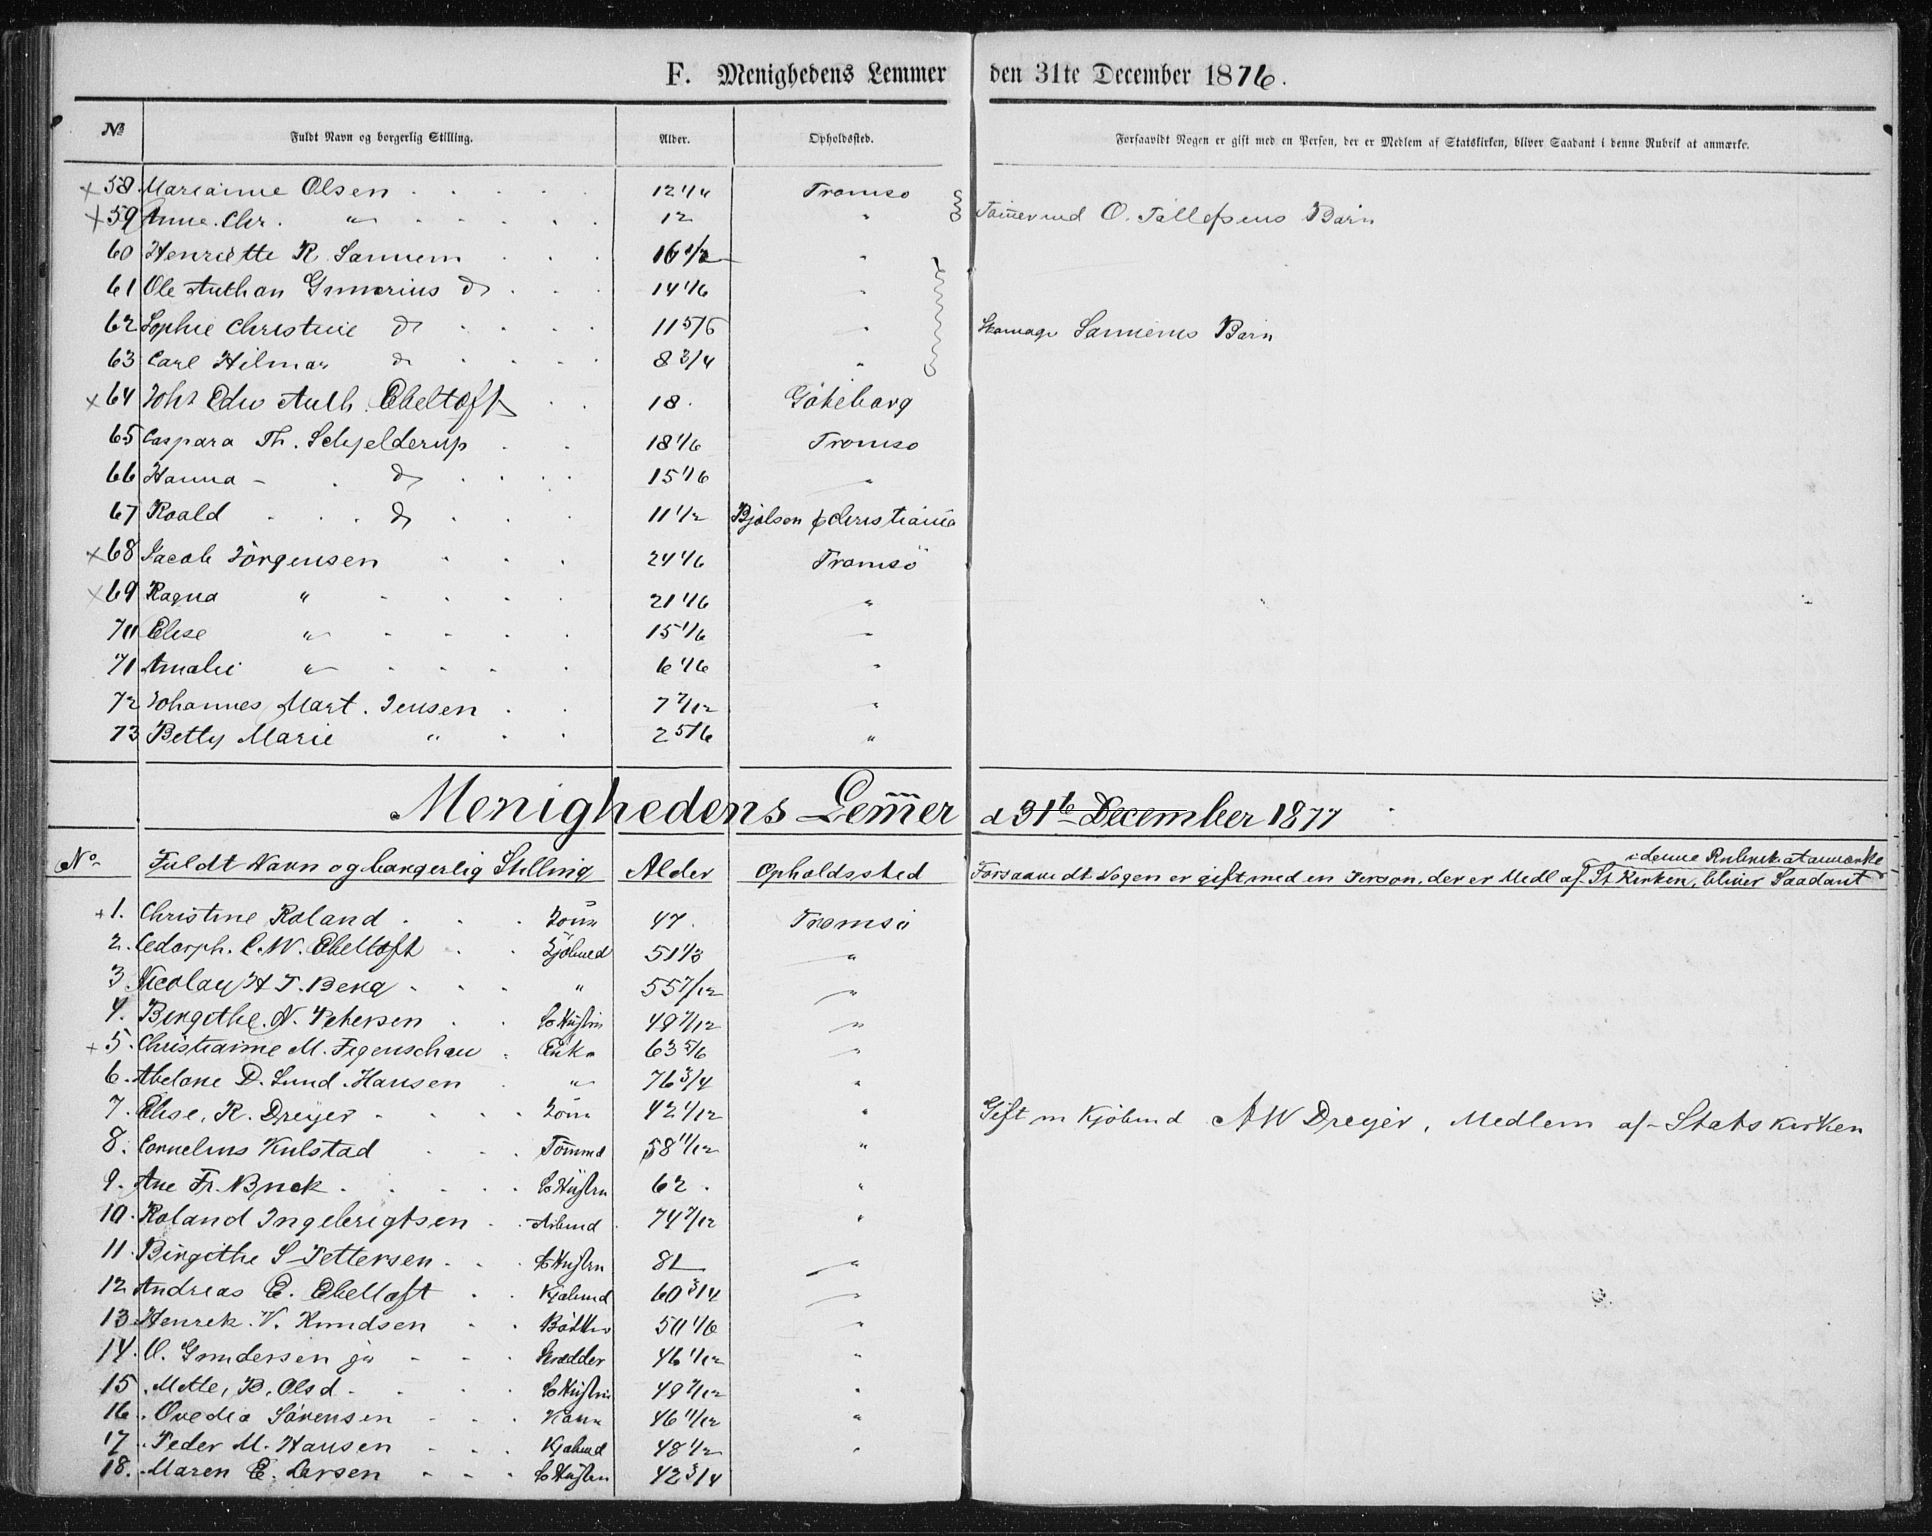 F. Menighedens Lemmer den 31te December 1876.
№ Fuldt Navn og borgerlig Stilling. Alder. Opholdssted. Forsaavidt Nogen er gift med en Person, der er Medlem af Statskirken, bliver Saadant i denne Rubrik at anmærke.
× 58 Marianne Olsen 12 1/4 Tromsø
× 59 Anne. Chr. " 12 " O. Tollefsens Barn
60 Henriette R Sannem 16 1/2 "
61 Ole Anthon Gunerius do 14 1/6 "
62 Sophie Christine do 11 5/6 " Sannems Barn
63 Carl Hilmar do 8 3/4 "
× 64 Johs Edw Anth. Ebeltoft 18. Göteborg
65 Caspara Th. Schjelderup 18 1/6 Tromsø
66 Hanna - do 15 1/6 "
67 Roald do 11 1/2 Bjølsen p Christiania
× 68 Jacob Jörgensen 24 1/6 Tromsö
× 69 Ragna " 21 1/6 "
70 Elise " 15 1/6 "
71 Amalie " 6 1/6 "
72 Johannes Mart. Jensen 7 7/12 "
73 Betty Marie " 2 5/6 "
Menighedens Lemmer d 31te December 1877
No Fuldt Navn og borgerlig Stilling Alder Opholdssted Forsaavidt Nogen er gift med en Person, der er Medl af St Kirken, bliver Saadant i denne Rubrik at anmærke
+ 1. Christine Roland 47. Tromsö
2. C. W. Ebeltoft 51 1/3 "
3. Nicolay H T. Berg " 55 7/12 "
4. Birgithe. N. Petersen 49 7/12 "
+ 5. Christianne M. Figenschau Enke 63 5/6 "
6. Abelone D. Lund. Hansen " 76 3/4 "
7. Elise. R. Dreyer 42 1/12 " Gift m Kjöbmd A W Dreyer, Medlem af Statskirken
8. Cornelius Kulstad Tömmd 58 11/12 "
9. Ane Fr. Buck 62. "
10. Roland Ingebrigtsen Arbmd 74 7/12 "
11. Birgithe S Pettersen 81 "
12 Andreas E. Ebeltoft Kjøbmd 60 3/4 "
13. Henrik. V. Knudsen Bödker 50 1/6 "
14. O. Gundersen jr Skrædder 46 1/12 "
15. Mette, B. Olsd. 49 7/12 "
16. Ovedia Sörensen Kone 46 11/12 "
17. Peder M. Hansen Kjøbmd 48 1/2 "
18. Maren E. Larsen 42 3/4